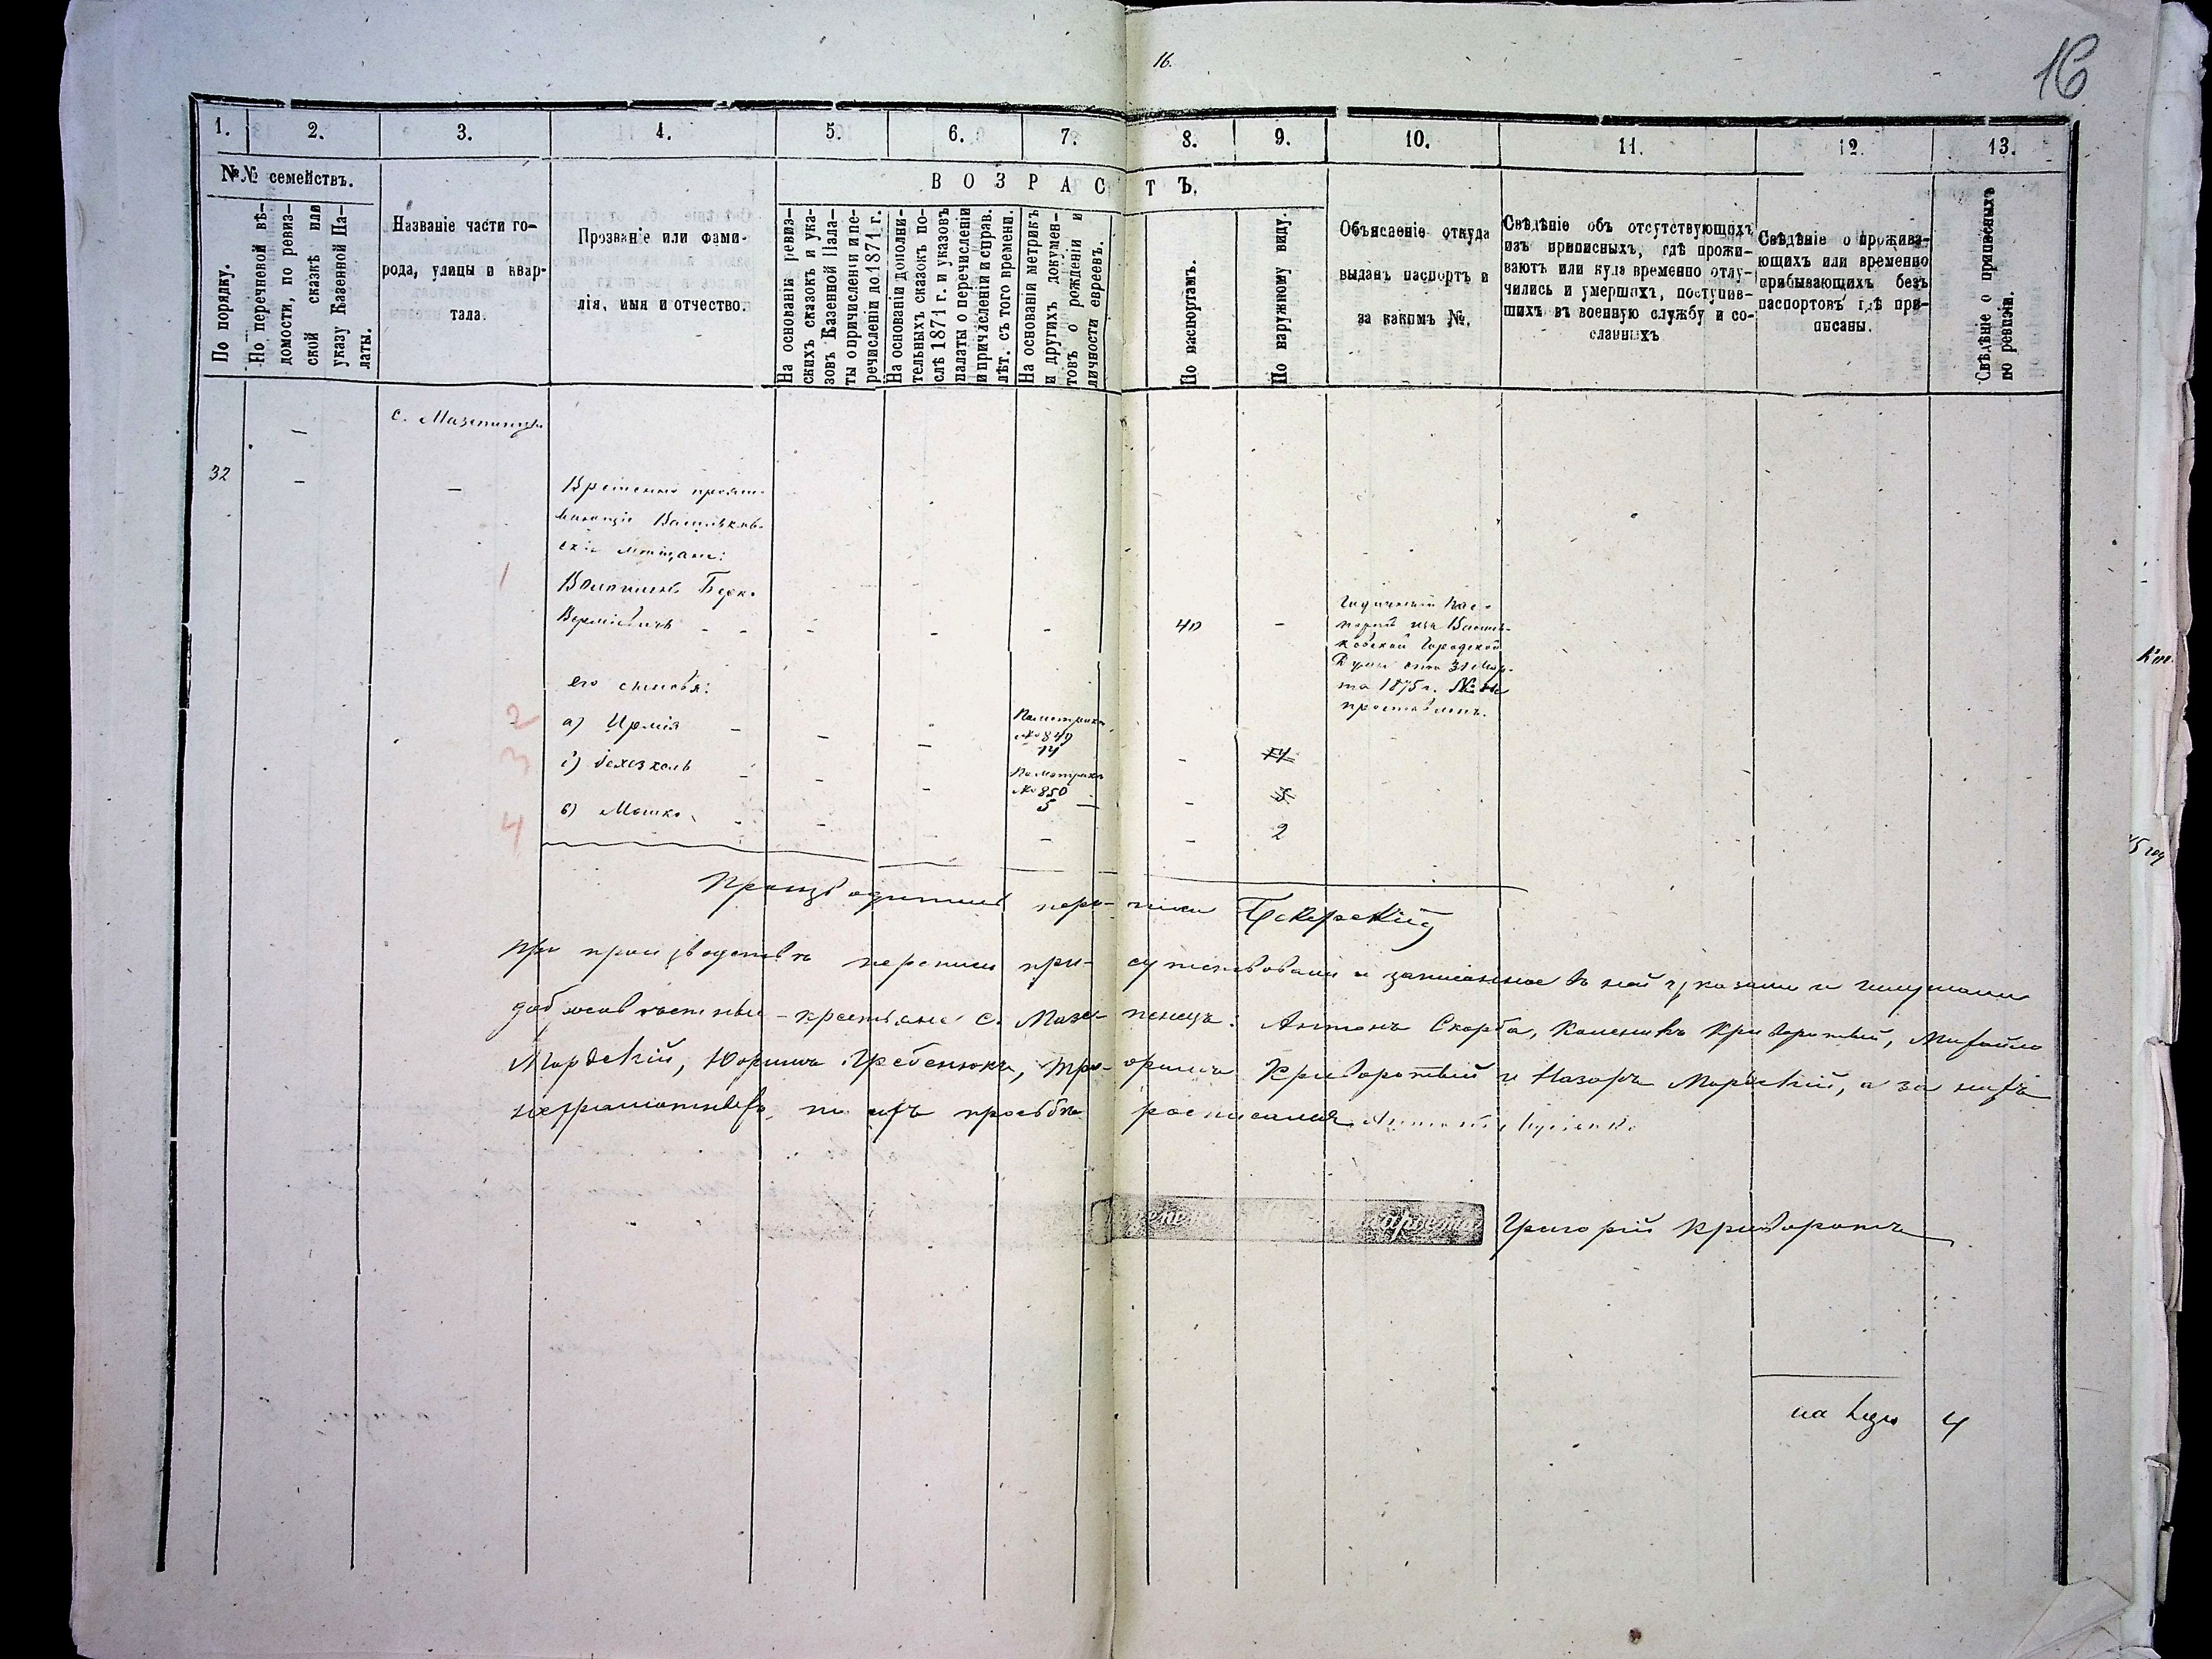 16.
16
1. 2. 3. 4. 5. 6. 7. 8. 9. 10. 11. 12. 13.
№№ семействъ.
По порядку.
По перечневой вѣ-
домости, по ревиз-
ской сказкѣ или
указу Казенной Па-
латы.
Названіе части го-
рода, улицы и квар-
тала.
Прозваніе или фами-
лія, имя и отчество.
ВОЗРАСТЪ.
На основаніи ревиз-
скихъ сказокъ и ука-
зовъ Казенной Пала-
ты о причисленіи и пе-
речисленіи до 1871 г.
На основаніи дополни-
тельныхъ сказокъ по-
слѣ 1871 г. и указовъ
палаты о перечисленіи
и причисленіи и справ.
лѣт. съ того времени.
На основаніи метрикъ
и другихъ докумен-
товъ о рожденіи и
личности евреевъ.
По паспортамъ.
По наружному виду.
Объясненіе откуда
выданъ паспортъ и
за какимъ №.
Свѣдѣніе объ отсутствующихъ
изъ приписныхъ, гдѣ прожи-
ваютъ или куда временно отлу-
чились и умершихъ, поступив-
шихъ въ военную службу и со-
сланныхъ
Свѣдѣніе о прожива-
ющихъ или временно
прибывающихъ безъ
паспортовъ гдѣ при-
писаны.
Свѣдѣніе о приписныхъ
по ревизіи.
с. Мазепинцы
32
Временно прожи-
вающіе Васильков-
скіе мѣщане:
1 Берк.
40
Годичный пас-
портъ изъ Василь-
ковской Городской
Думы отъ 31 Мар-
та 1875 г. № не
проставленъ.
его сыновья:
2 а) Ирмія
По метрикѣ
№ 849
14
3
По метрикѣ
№ 850
5
4 в) Мошко
2
Производитель переписи
При производствѣ переписи присутствовали и записанное въ ней указали и
добросовѣстные - крестьяне с. Мазепинецъ: Антонъ Скорба, Каленикъ Криворотый, Михайло
Марскій, Юхимъ Гребенюкъ, Криворотый и Назаръ Марскій, а за нихъ
неграмотныхъ, по ихъ просьбѣ росписался
Григорій Криворотъ
на лицо 4